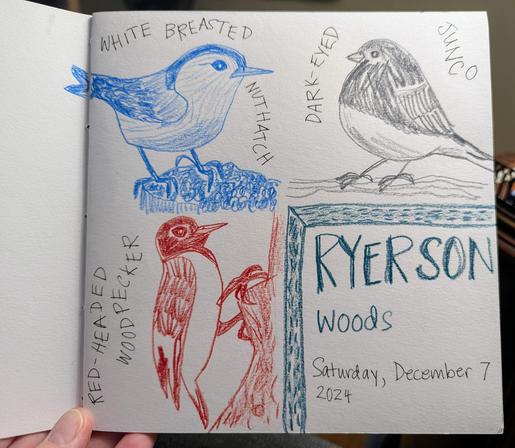 WHITE BREASTED
NUTHATCH
DARK-EYED
JUNCO
RED-HEADED
WOODPECKER
RYERSON
Woods
Saturday, December 7
2024